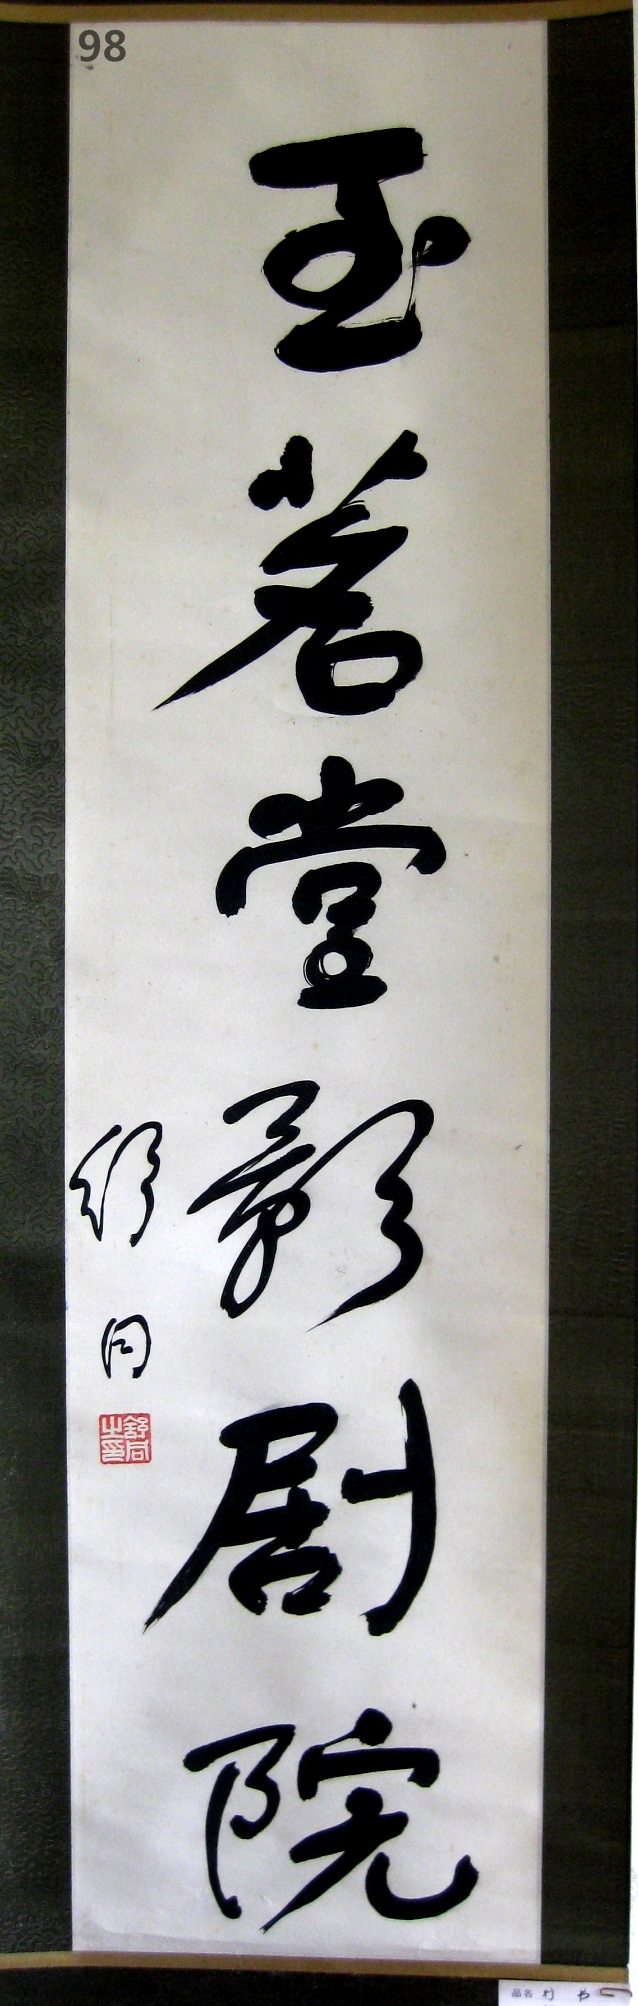 98
玉茗堂影剧院
舒同
舒同之印
品名